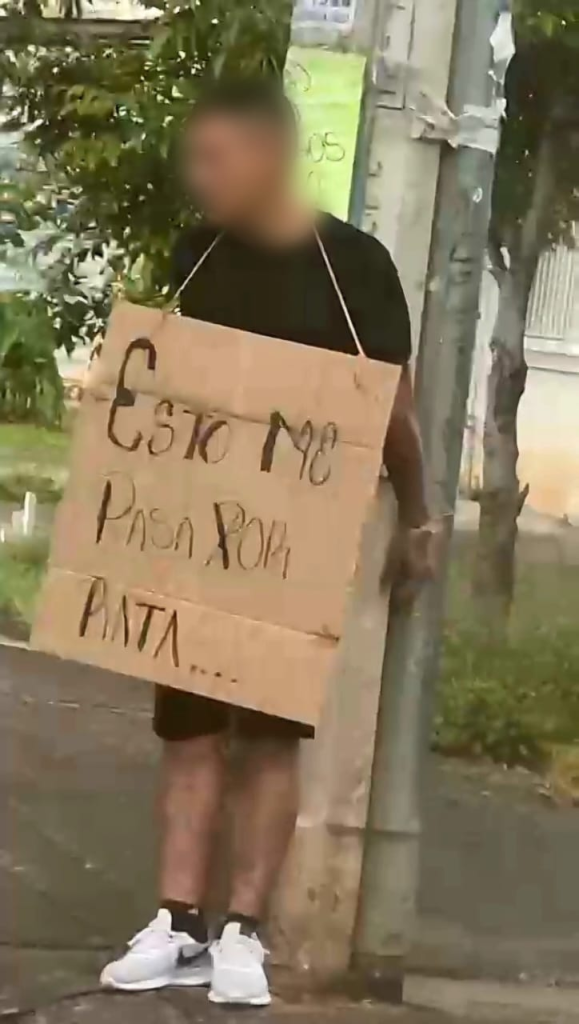 OS
ESTO ME
PASA POR
RATA....